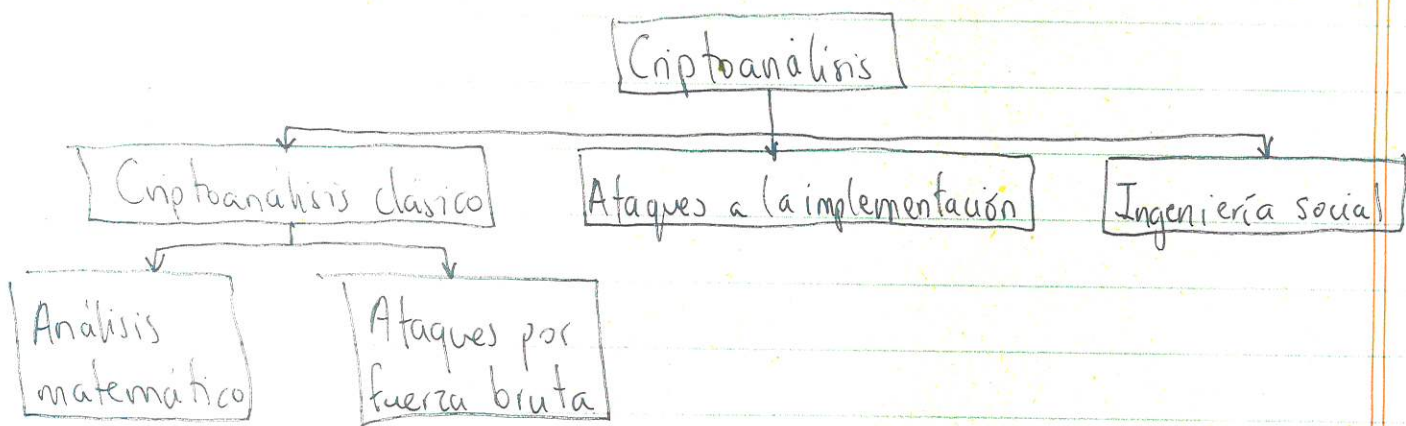 Criptoanálisis
Criptoanálisis clásico
Ataques a la implementación
Ingeniería social
Análisis
matemático
Ataques por
fuerza bruta